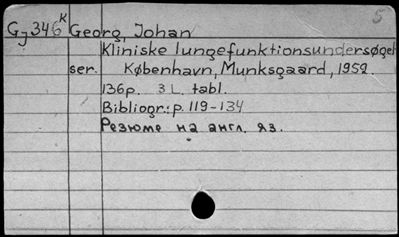 5
Gj346 K Georg, Johan
Kliniske lungefunktionsundersøgel
ser. København, Munksgaard, 1952.
136p. 3 L. tabl.
Bibliogr.: p. 119-134
Резюме на англ. яз.